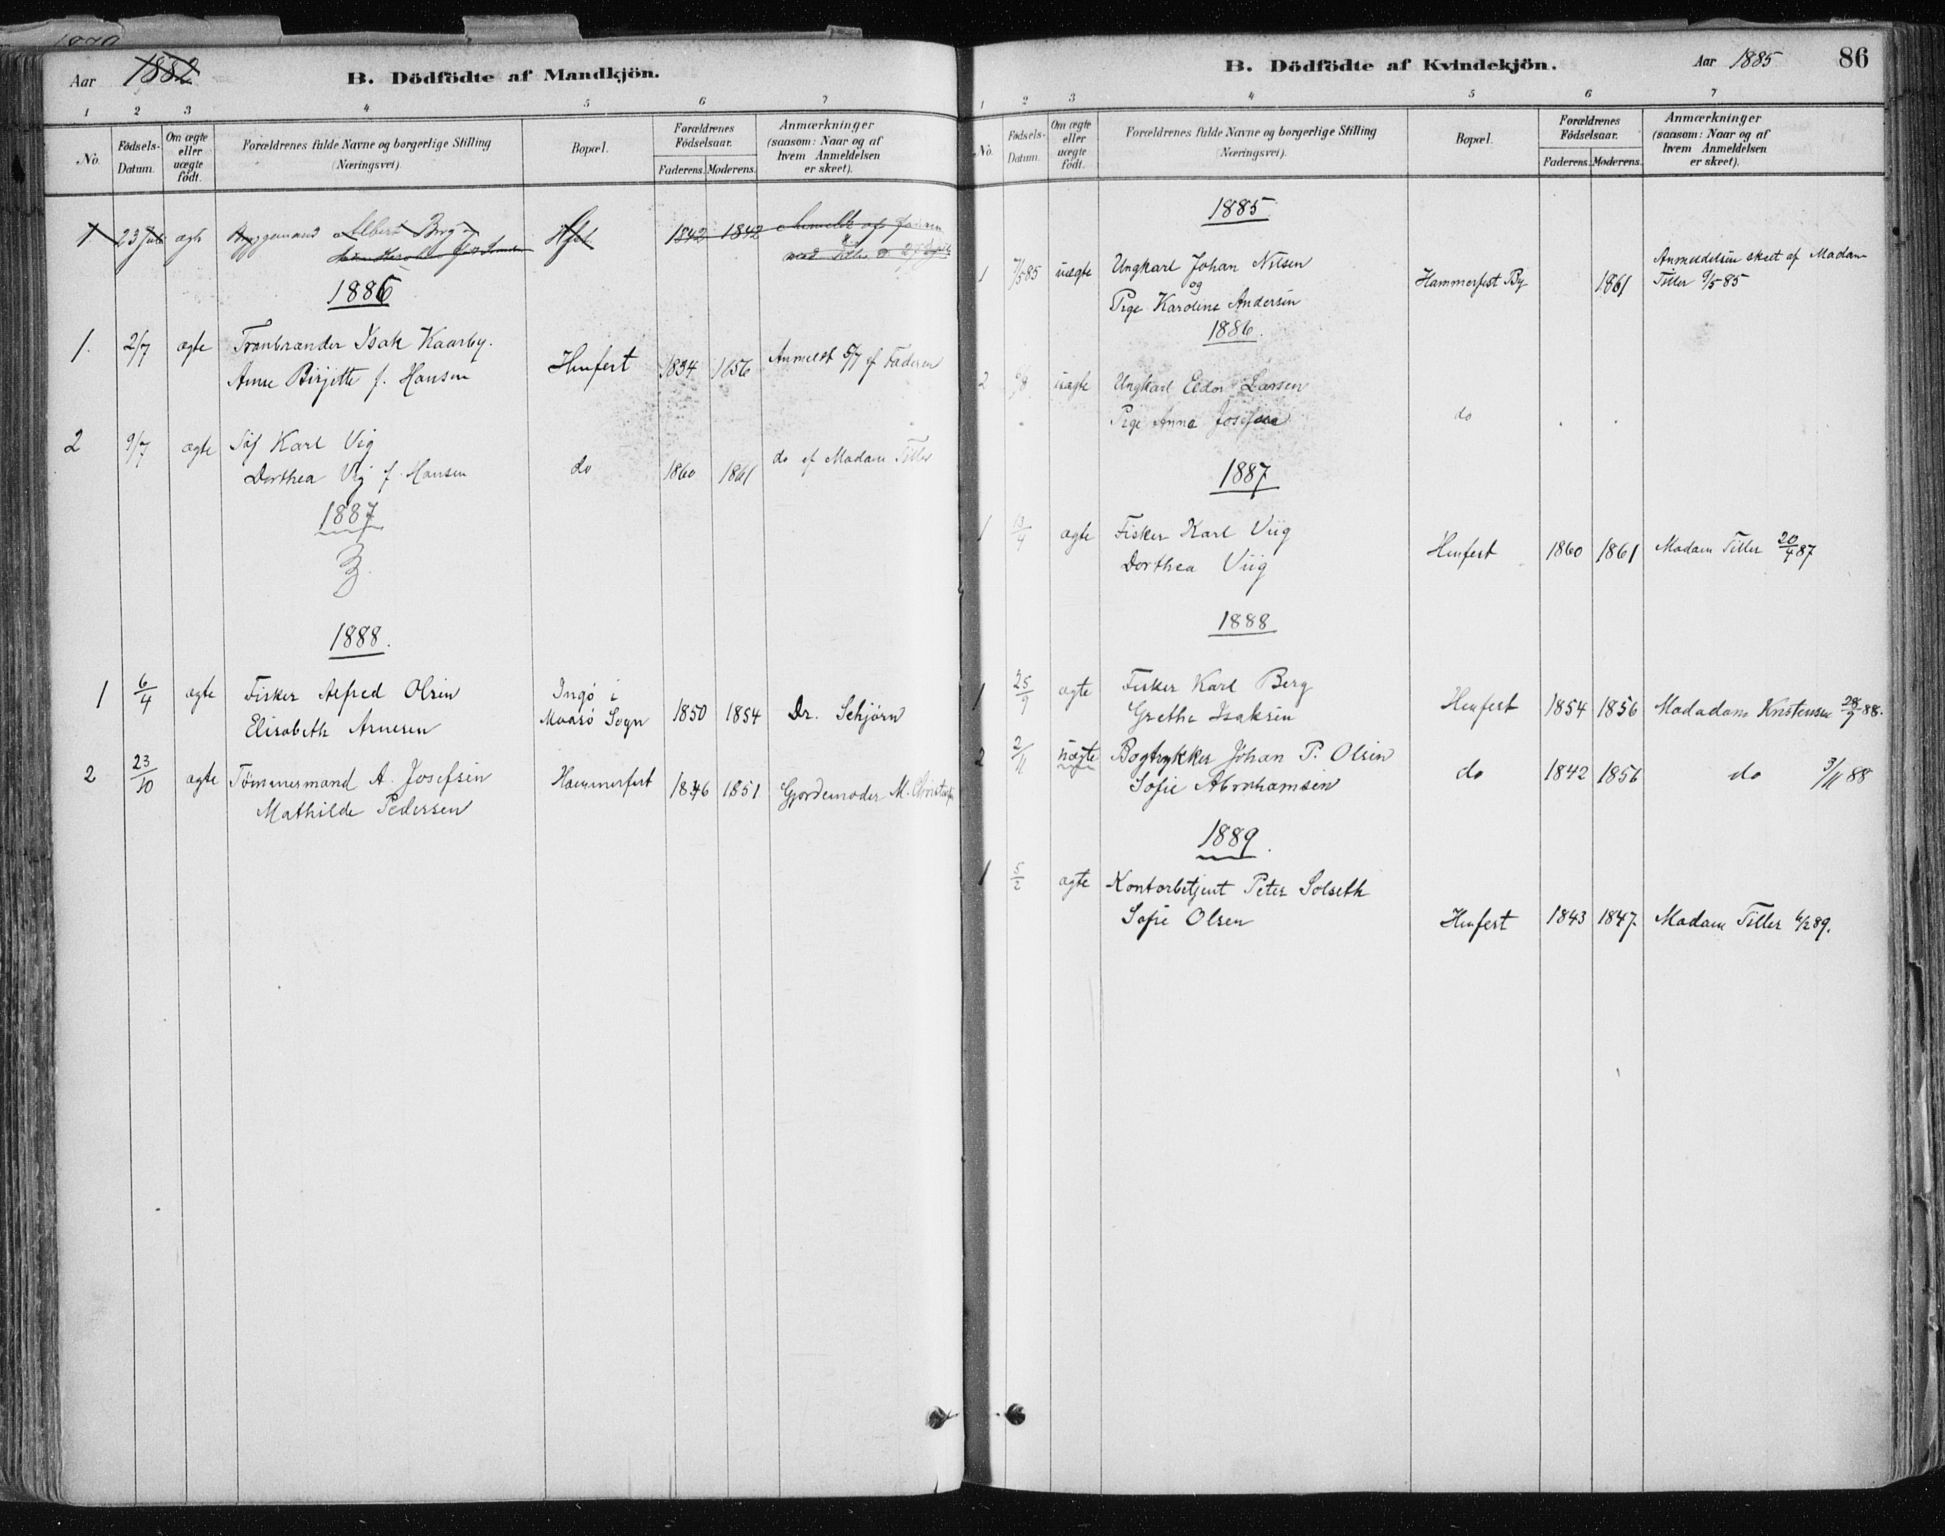 Aar 1882
B. Dödfödte af Mandkjön.
1 2 3 4 5 6 7
No. Födsels-Datum. Om ægte eller uægte födt. Forældrenes fulde Navne og borgerlige Stilling (Næringsvei). Bopæl. Forældrenes Födselsaar. Faderens. Moderens. Anmærkninger (saasom: Naar og af hvem Anmeldelsen er skeet).
1 23 Juli ægte Byggemand Albert Berg 1842 1842 Anmeldt af
1886
1. 2/7 ægte Tranbrænder Isak Kaarby. Hmfert 1834 1856 Anmeldt 5/7 af Faderen
Anne Birgitte f. Hansen
2 9/7 ægte Karl Vig do 1860 1861 do af Madam Tiller
Dorthea Vig f. Hansen
1887
1888.
1 6/4 ægte Fisker Alfred Olsen Ingö i 1850 1854 Dr. Schjörn
Elisabeth Arnesen Maasö Sogn
2 23/10 ægte Tömmermand A. Josefsen Hammerfest 1846 1851 Gjordemoder M.
Mathilde Pedersen
B. Dödfödte af Kvindekjön. Aar 1885 86
1 2 3 4 5 6 7
No. Födsels-Datum. Om ægte eller uægte födt. Forældrenes fulde Navne og borgerlige Stilling (Næringsvei). Bopæl. Forældrenes Födselsaar. Faderens. Moderens. Anmærkninger (saasom: Naar og af hvem Anmeldelsen er skeet).
1885
1 7/5 85 uægte Ungkarl Johan Nilsen Hammerfest By 1861 Anmeldelsen skeet af Madam
og Tiller 9/5 85
Pige Karoline Andersen
1886.
2 uægte Ungkarl Eldor Larsen do
Pige Anna
1887
1 13/4 ægte Fisker Karl Viig Hmfest 1860 1861 Madam Tiller 20/4 87
Dorthea Viig
1888
1 25/9 ægte Fisker Karl Berg Hmfest 1854 1856 Madadam Kristensen 28/9 88.
Grethe Isaksen
2 2/11 uægte Bogtrykker Johan P. Olsen do 1842 1856 do 3/11 88
Sofie Abrahamsen
1889.
1 5/2 ægte Kontorbetjent Peter Solseth
Sofie Olsen Hmfest 1843 1847. Madam Tiller 6/2 89.